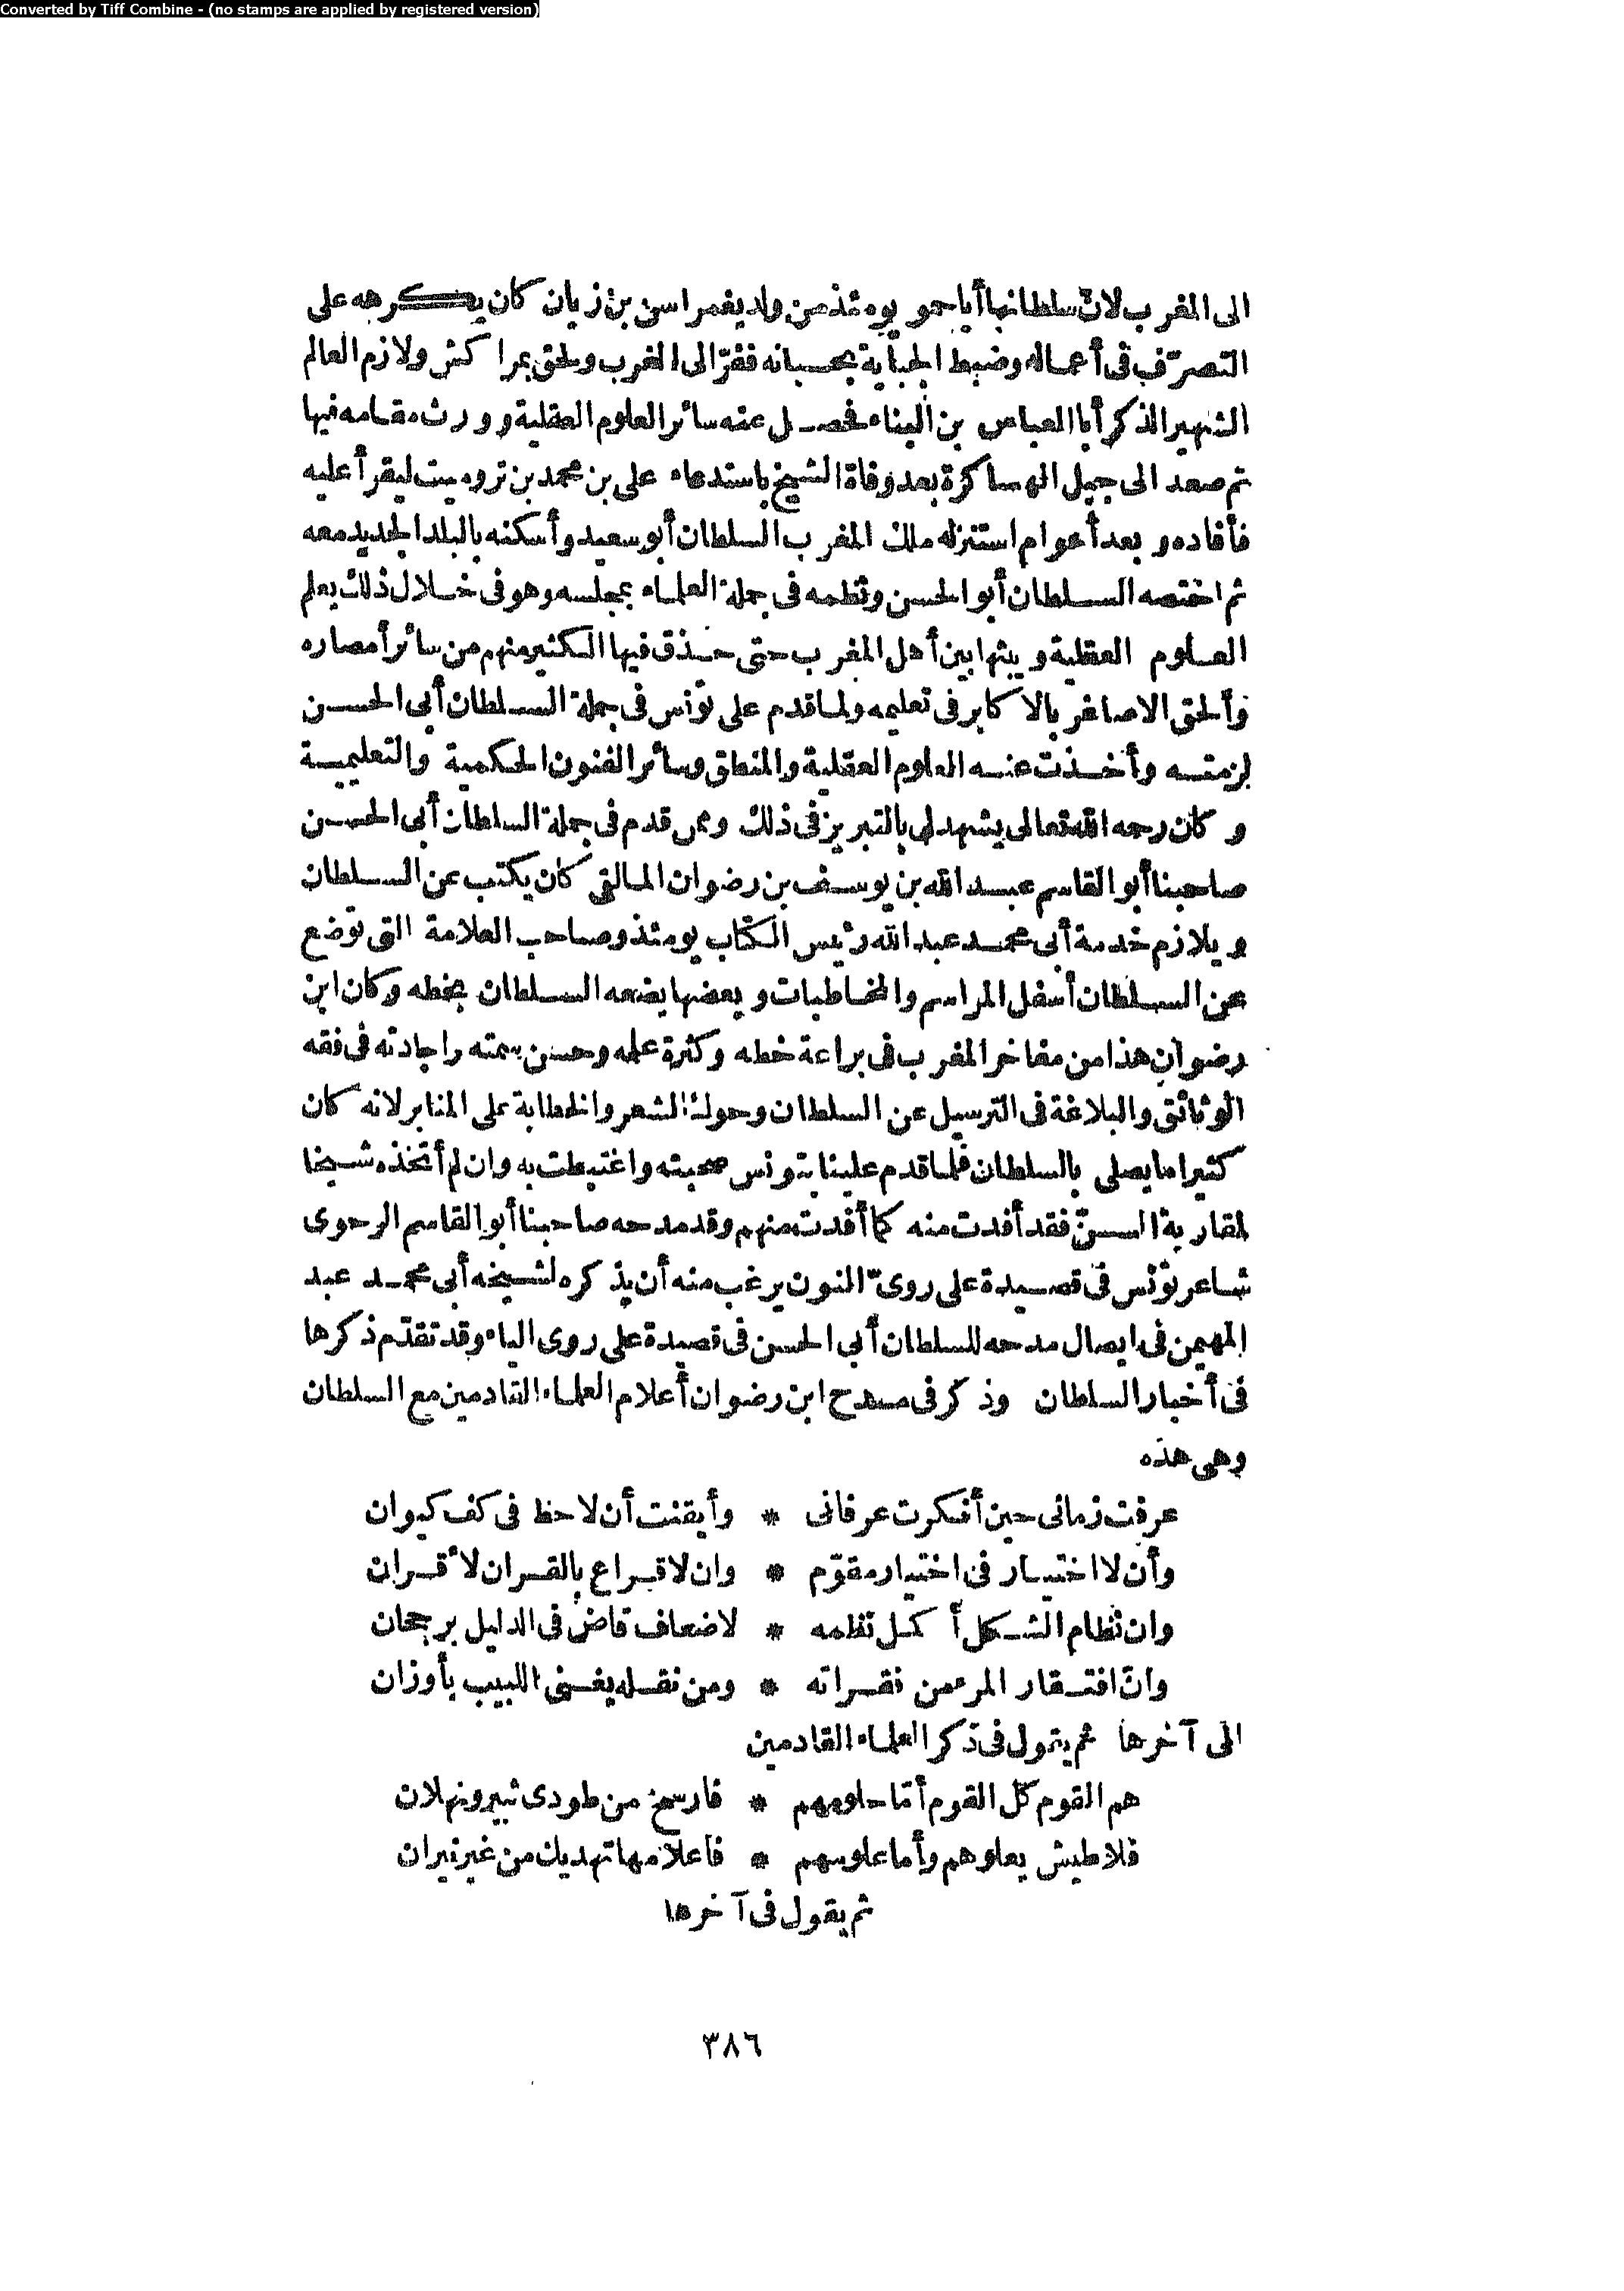 Converted by Tiff Combine - (no stamps are applied by registered version)
الى المغرب لانّ سلطانها أبا حمو يومئذ من ولد يغمراسن بن زيان كان يكرهه على
التصرّف فى أعماله وضبط الجباية بحسبانه ففرّ الى المغرب ولحق بمراكش ولازم العالم
الشهير الذكر أبا العباس بن البناء فحصل عنه سائر العلوم العقلية وورث مقامه فيها
ثم صعد الى جبل الهساكرة بعد وفاة الشيخ باستدعاء على بن محمد بن تروميت ليقرأ عليه
فأفاده وبعد أعوام استنزله ملك المغرب السلطان أبو سعيد وأسكنه بالبلد الجديد معه
ثم اختصه السلطان أبو الحسن ونظمه فى جملة العلماء بمجلسه وهو فى خلال ذلك يعلم
العلوم العقلية ويبثها بين أهل المغرب حتى حذق فيها الكثير منهم من سائر أمصاره
وألحق الاصاغر بالاكابر فى تعليمه ولما قدم على تونس فى جملة السلطان أبى الحسن
لزمته وأخذت عنه العلوم العقلية والمنطق وسائر الفنون الحكمية والتعليمية
وكان رحمه الله تعالى يشهد لى بالتبريز فى ذلك وممن قدم فى جملة السلطان أبى الحسن
صاحبنا أبو القاسم عبد الله بن يوسف بن رضوان المالقى كان يكتب عن السلطان
ويلازم خدمة أبى محمد عبد الله رئيس الكتّاب يومئذ وصاحب العلامة التى توضع
عن السلطان أسفل المراسم والمخاطبات وبعضها يضعه السلطان بخطه وكان ابن
رضوان هذا من مفاخر المغرب فى براعة خطه وكثرة علمه وحسن سمته واجادته فى فقه
الوثائق والبلاغة فى الترسيل عن السلطان وحوك الشعر والخطابة على المنابر لانه كان
كثيرا ما يصلى بالسلطان فلما قدم علينا بتونس صحبته واغتبطت به وان لم أتخذه شيخا
لمقاربة السنّ فقد أفدت منه كما أفدت منهم وقد مدحه صاحبنا أبو القاسم الرحوى
شاعر تونس فى قصيدة على روىّ النون يرغب منه أن يذكره لشيخه أبى محمد عبد
المهيمن فى ايصال مدحه للسلطان أبى الحسن فى قصيدة على روى الياء وقد تقدّم ذكرها
فى أخبار السلطان وذكر فى مدح ابن رضوان أعلام العلماء القادمين مع السلطان
وهى هذه
عرفت زمانى حين أنكرت عرفانى * وأيقنت أن لا حظ فى كف كيوان
وأن لا اختيار فى اختيار مقوّم * وان لا قراع بالقران لأقران
وان نظام الشكل أكمل نظمه * لاضعاف قاض فى الدليل برجحان
وانّ افتقار المرء من نقراته * ومن نقله يغنى اللبيب بأوزان
الى آخرها ثم يقول فى ذكر العلماء القادمين
هم القوم كل القوم أمّا حلومهم * فارسخ من طودى ثبير وثهلان
فلا طيش يعلوهم وأما علومهم * فأعلامها تهديك من غير نيران
ثم يقول فى آخرها
٣٨٦